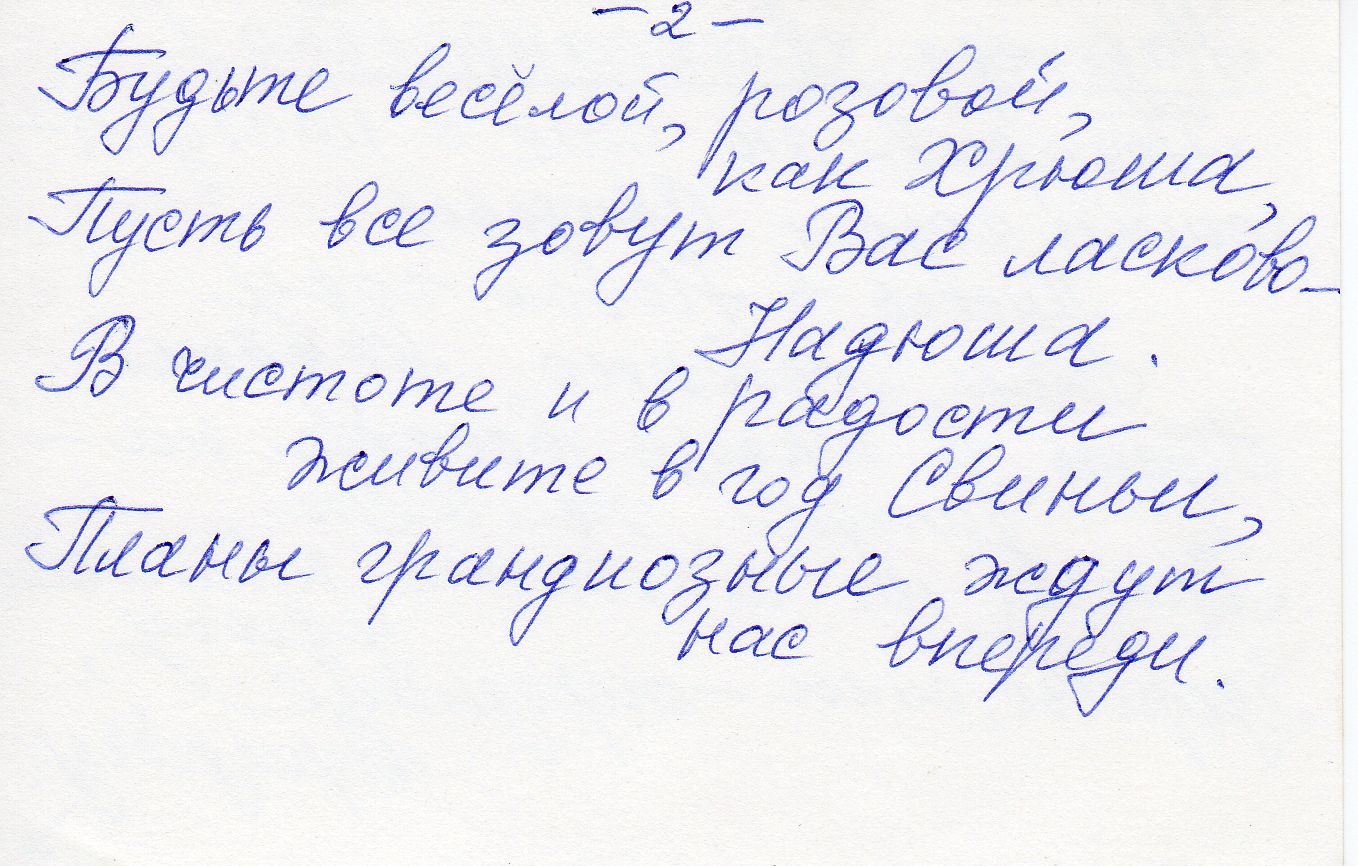 - 2 -
Будьте весёлой, розовой,
как Хрюша,
Пусть все зовут Вас ласково-
Надюша.
В чистоте и в радости
живите в год Свиньи,
Планы грандиозные ждут
нас впереди.